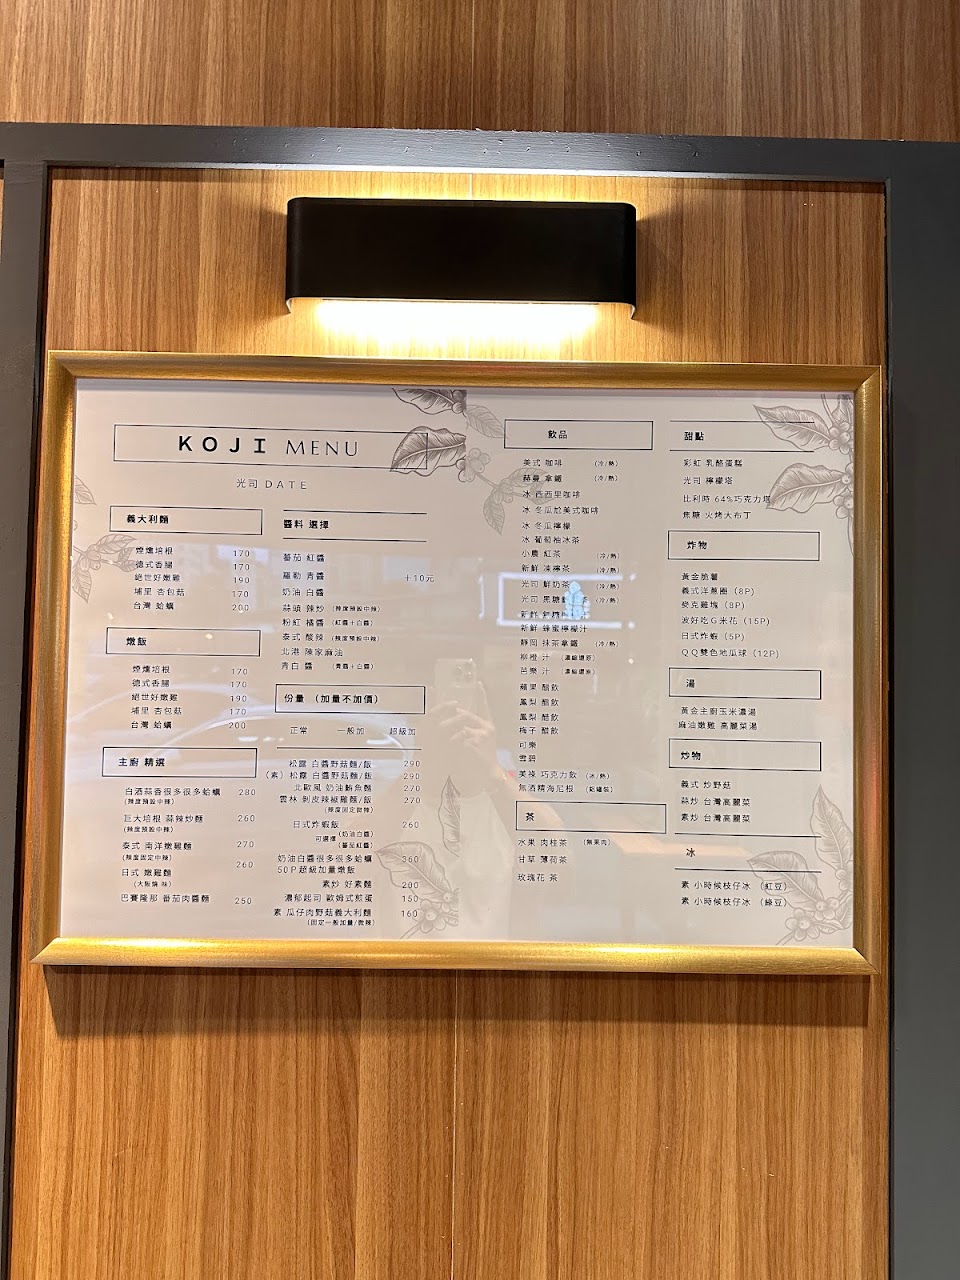 KOJI MENU
光司 DATE
義大利麵
煙燻培根 170
德式香腸 170
絕世好嫩雞 190
埔里 杏包菇 170
台灣 蛤蠣 200
燉飯
煙燻培根 170
德式香腸 170
絕世好嫩雞 190
埔里 杏包菇 170
台灣 蛤蠣 200
主廚 精選
白酒蒜香很多很多蛤蠣 280
(辣度預設中辣)
巨大培根 蒜辣炒麵 260
(辣度預設中辣)
泰式 南洋嫩雞麵 270
(辣度固定中辣)
日式 嫩雞麵 260
(大阪燒 味)
巴賽隆那 番茄肉醬麵 250
醬料 選擇
蕃茄 紅醬
羅勒 青醬 +10元
奶油 白醬
蒜頭 辣炒 (辣度預設中辣)
粉紅 橘醬 (紅醬+白醬)
泰式 酸辣 (辣度預設中辣)
北港 陳家麻油
青白 醬 (青醬+白醬)
份量 (加量不加價)
正常 一般加 超級加
松露 白醬野菇麵/飯 290
(素) 松露 白醬野菇麵/飯 290
北歐風 奶油鮪魚麵 270
雲林 剝皮辣椒雞麵/飯 270
(辣度固定微辣)
日式炸蝦飯 260
可選擇 (奶油白醬)
(蕃茄紅醬)
奶油白醬很多很多蛤蠣 360
50P超級加量燉飯
素炒 好素麵 200
濃郁起司 歐姆式煎蛋 150
素 瓜仔肉野菇義大利麵 160
(固定一般加量/微辣)
飲品
美式 咖啡 (冷/熱)
赫曼 拿鐵 (冷/熱)
冰 西西里咖啡
冰 冬瓜尬美式咖啡
冰 冬瓜檸檬
冰 葡萄柚冰茶
小農 紅茶 (冷/熱)
新鮮 凍檸茶 (冷/熱)
光司 鮮奶茶 (冷/熱)
光司 黑糖 茶 (冷/熱)
新鮮 檸檬汁
新鮮 蜂蜜檸檬汁
靜岡 抹茶拿鐵 (冷/熱)
柳橙 汁 (濃縮還原)
芭樂 汁 (濃縮還原)
蘋果 醋飲
鳳梨 醋飲
鳳梨 醋飲
梅子 醋飲
可樂
雪碧
美祿 巧克力飲 (冰/熱)
無酒精海尼根 (鋁罐裝)
茶
水果 肉桂茶 (無果肉)
甘草 薄荷茶
玫瑰花 茶
甜點
彩虹 乳酪蛋糕
光司 檸檬塔
比利時 64%巧克力塔
焦糖 火烤大布丁
炸物
黃金脆薯
義式洋蔥圈 (8P)
麥克雞塊 (8P)
波好吃G米花 (15P)
日式炸蝦 (5P)
QQ雙色地瓜球 (12P)
湯
黃金主廚玉米濃湯
麻油嫩雞 高麗菜湯
炒物
義式 炒野菇
蒜炒 台灣高麗菜
素炒 台灣高麗菜
冰
素 小時候枝仔冰 (紅豆)
素 小時候枝仔冰 (綠豆)